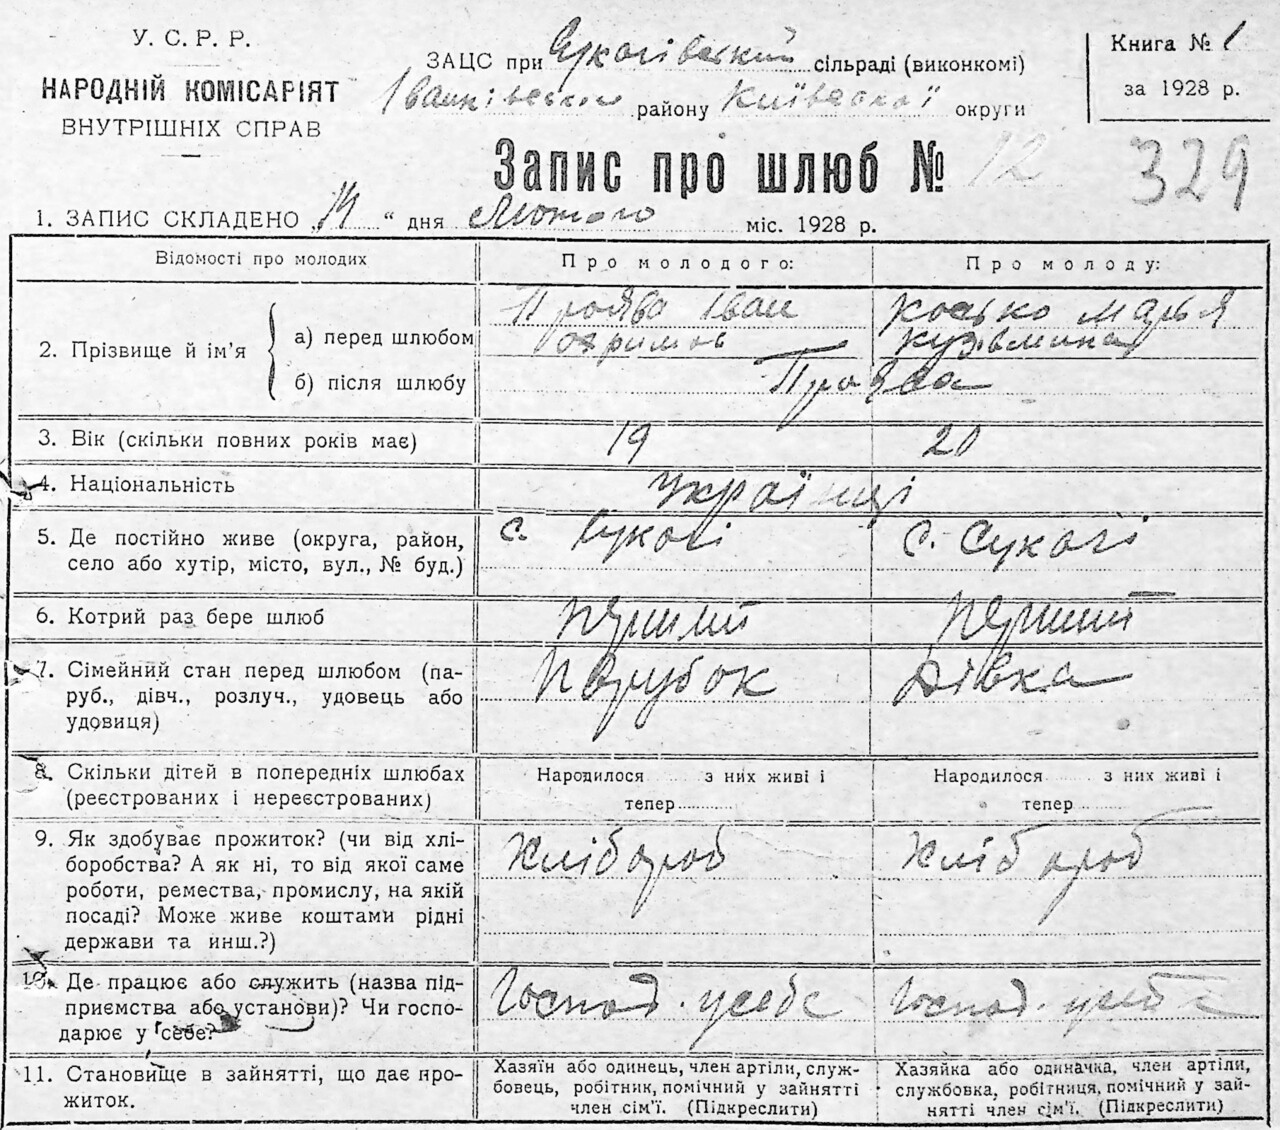 У. С. Р. Р.
НАРОДНІЙ КОМІСАРІЯТ
ВНУТРІШНІХ СПРАВ
ЗАЦС при Сукачівський сільраді (виконкомі)
Іванківського району Київської округи
Книга № 1
за 1928 р.
Запис про шлюб № 12
329
1. ЗАПИС СКЛАДЕНО „14“ дня Лютого міс. 1928 р.
Відомості про молодих Про молодого: Про молоду:
2. Прізвище й ім'я
а) перед шлюбом
Проява Іван
Охримов
Косько Марья
Кузьмина
б) після шлюбу
Проява
3. Вік (скільки повних років має) 19 20
4. Національність Українці
5. Де постійно живе (округа, район,
село або хутір, місто, вул., № буд.)
с. Сукачі
с. Сукачі
6. Котрий раз бере шлюб Перший Перший
7. Сімейний стан перед шлюбом (па-
руб., дівч., розлуч., удовець або
удовиця)
Парубок
Дівка
8. Скільки дітей в попередніх шлюбах
(реєстрованих і нереєстрованих)
Народилося з них живі і
тепер
Народилося з них живі і
тепер
9. Як здобуває прожиток? (чи від хлі-
боробства? А як ні, то від якої саме
роботи, ремества, промислу, на якій
посаді? Може живе коштами рідні
держави та инш.?)
Хлібороб
Хлібороб
10. Де працює або служить (назва під-
приємства або установи)? Чи госпо-
дарює у себе?
Господ. у себе
Господ. у себе
11. Становище в зайнятті, що дає про-
житок.
Хазяїн або одинець, член артілі, служ-
бовець, робітник, помічний у зайнятті
член сім'ї. (Підкреслити)
Хазяйка або одиначка, член артіли,
службовка, робітниця, помічний у зай-
нятті член сім'ї. (Підкреслити)